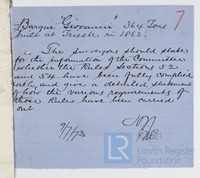 7
Barque "Giovanni" 364 Tons
built at Trieste in 1862.
The Surveyors should state
for the information of the Committee
whether the Rules Sections 52
and 54 have been fully complied
with, and give a detailed statement
of how the various requirements of
those Rules have been carried
out
9/7/73
LR
Lloyd's Register
Foundation